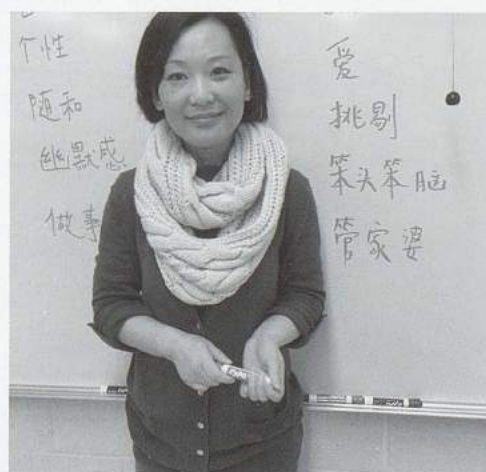 个性
随和
幽默感
做事
爱
挑剔
笨头笨脑
管家婆